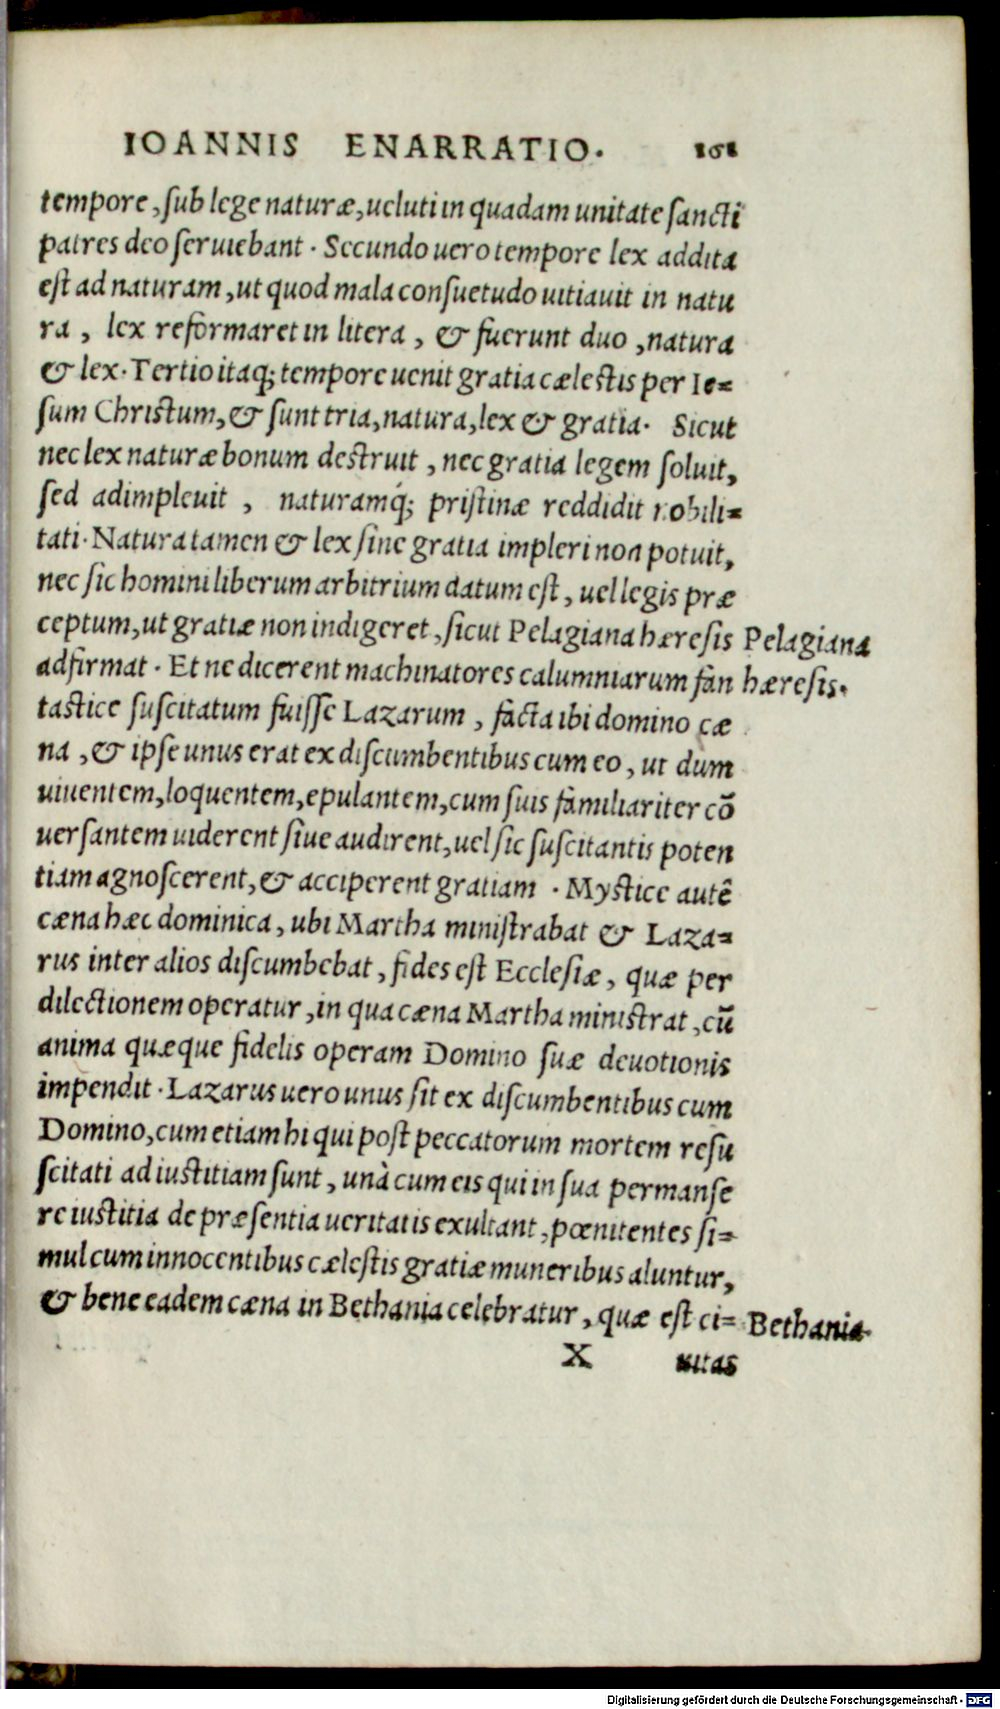 IOANNIS ENARRATIO. 161
tempore, sub lege naturæ, ueluti in quadam unitate sancti
patres deo seruiebant. Secundo uero tempore lex addita
est ad naturam, ut quod mala consuetudo uitiauit in natu
ra, lex reformaret in litera, & fuerunt duo, natura
& lex. Tertio itaq; tempore uenit gratia cælestis per Ie=
sum Christum, & sunt tria, natura, lex & gratia. Sicut
nec lex naturæ bonum destruit, nec gratia legem soluit,
sed adimpleuit, naturamq́; pristinæ reddidit nobili=
tati. Natura tamen & lex sine gratia impleri non potuit,
nec sic homini liberum arbitrium datum est, uel legis præ
ceptum, ut gratiæ non indigeret, sicut Pelagiana hæresis Pelagiana
adfirmat. Et ne dicerent machinatores calumniarum fan hæresis.
tastice suscitatum fuisse Lazarum, facta ibi domino cæ
na, & ipse unus erat ex discumbentibus cum eo, ut dum
uiuentem, loquentem, epulantem, cum suis familiariter cō
uersantem uiderent siue audirent, uel sic suscitantis poten
tiam agnoscerent, & acciperent gratiam. Mystice autē
cæna hæc dominica, ubi Martha ministrabat & Laza=
rus inter alios discumbebat, fides est Ecclesiæ, quæ per
dilectionem operatur, in qua cæna Martha ministrat, cū
anima quæque fidelis operam Domino suæ deuotionis
impendit. Lazarus uero unus sit ex discumbentibus cum
Domino, cum etiam hi qui post peccatorum mortem resu
scitati ad iustitiam sunt, unà cum eis qui in sua permanse
re iustitia de præsentia ueritatis exultant, pœnitentes si=
mul cum innocentibus cælestis gratiæ muneribus aluntur,
& bene eadem cæna in Bethania celebratur, quæ est ci= Bethania.
X uitas
Digitalisierung gefördert durch die Deutsche Forschungsgemeinschaft - DFG